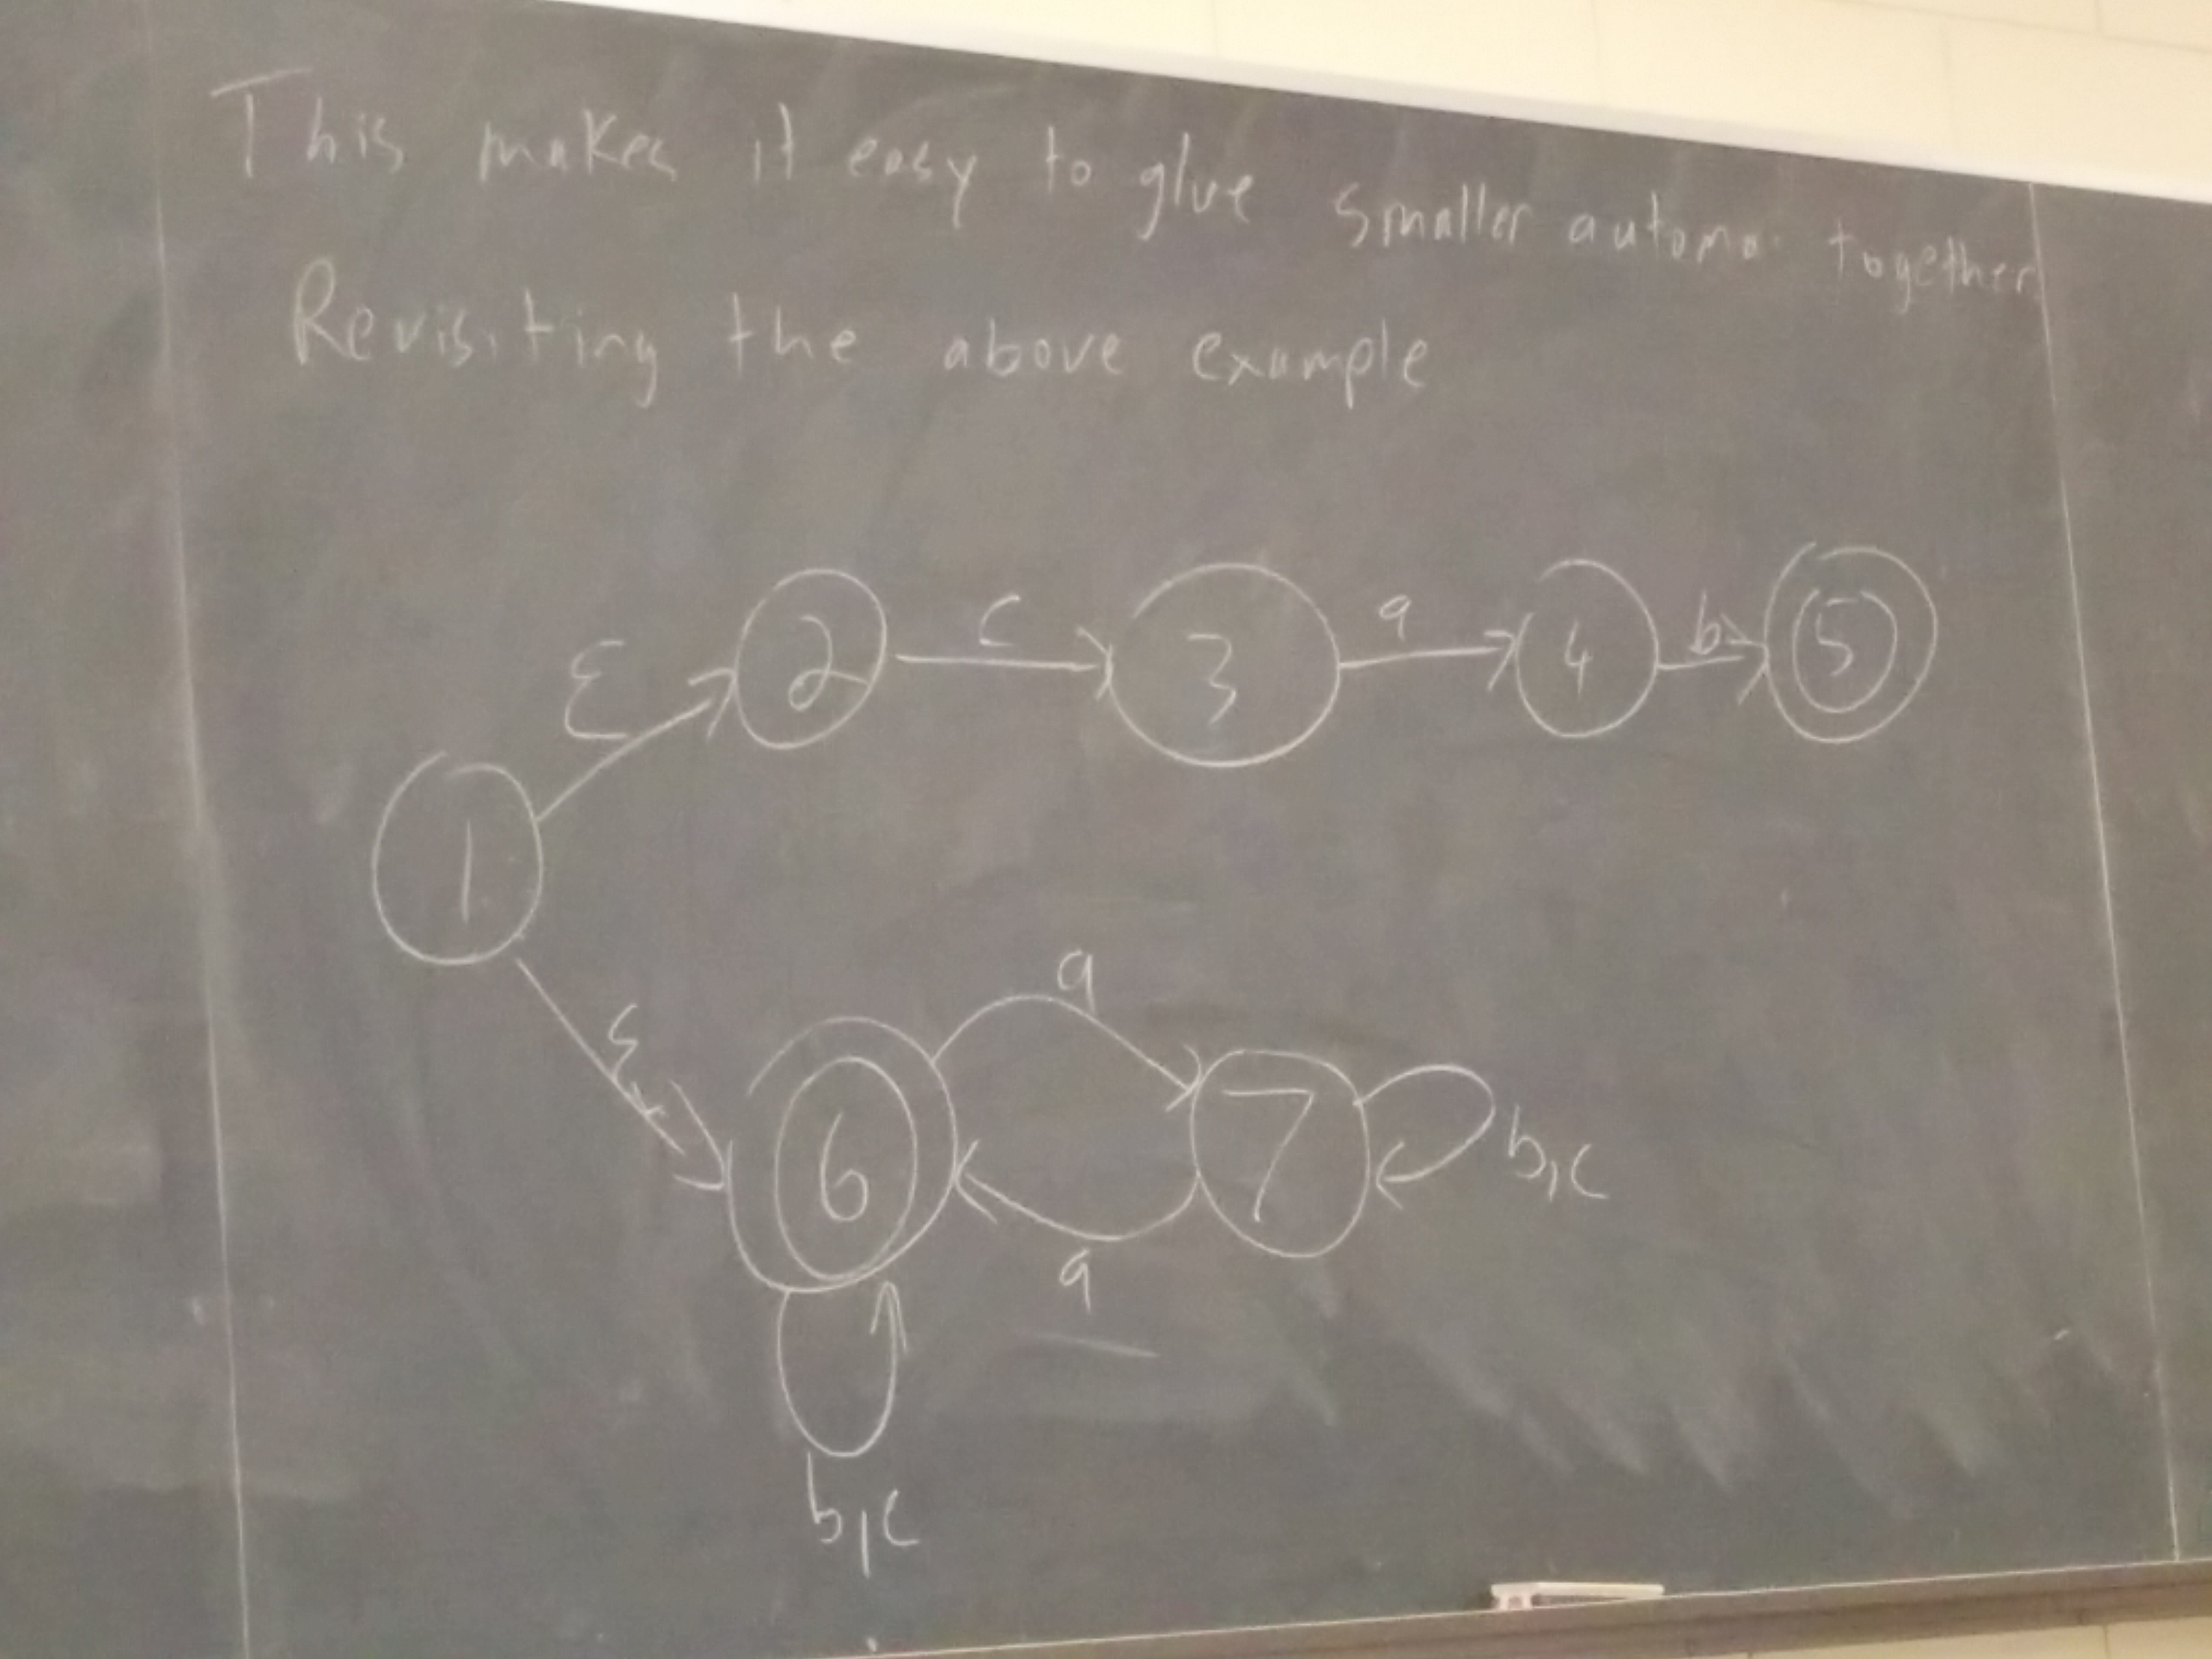 This makes it easy to glue smaller automa together
Revisiting the above example
ε
2
c
3
a
4
b
5
1
ε
6
a
7
b,c
a
b,c